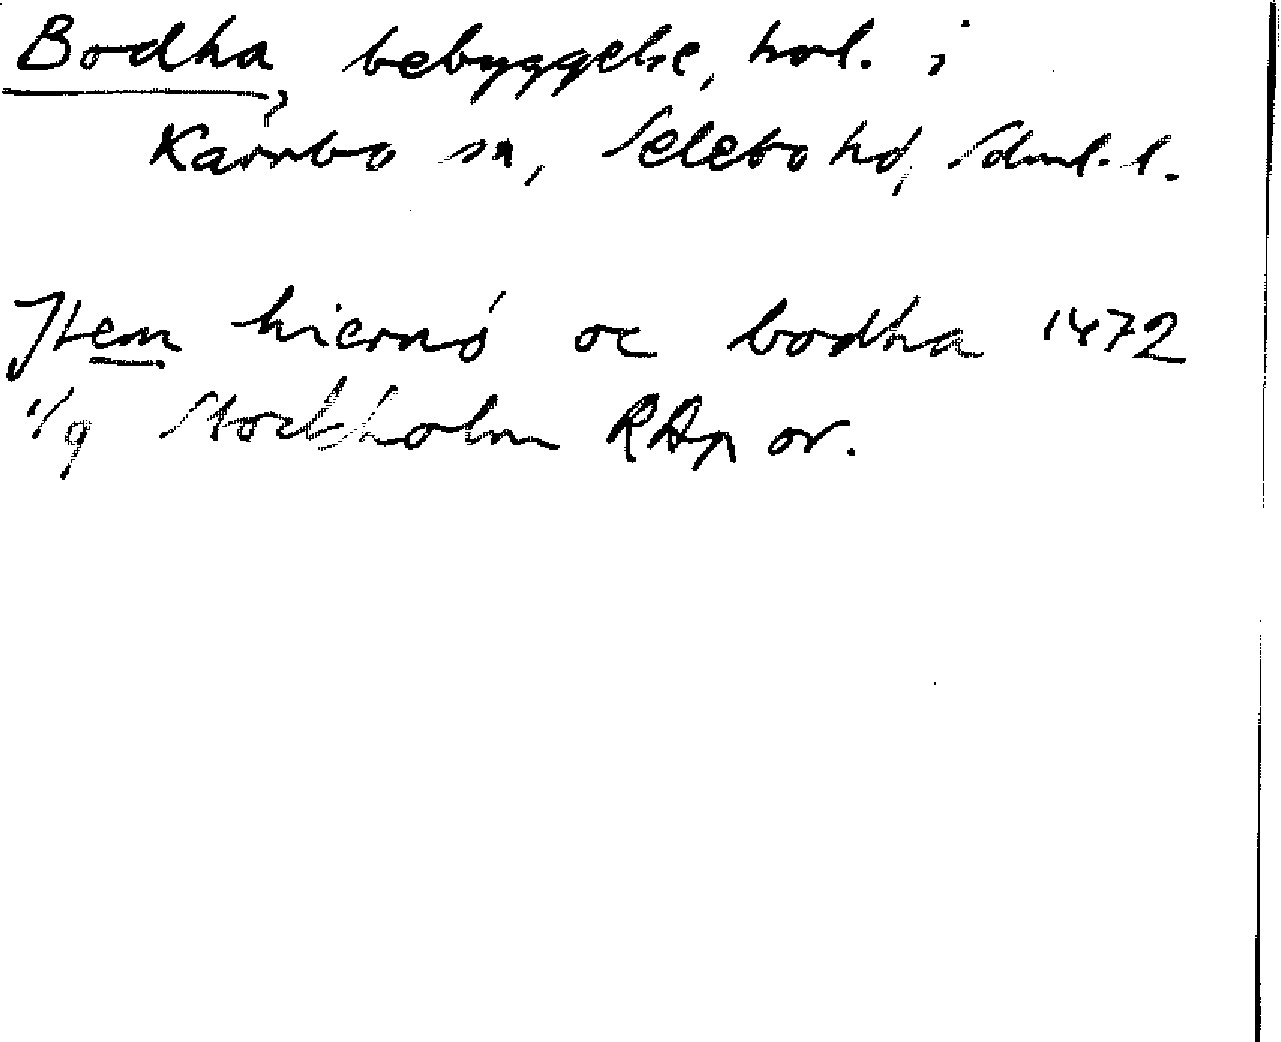 Bodha, bebyggelse, trol. i
Kärnbo sn, Selebo hd, Sdml. l.
Item hiernö oc bodha 1472
1/9 Stockholm RAp or.